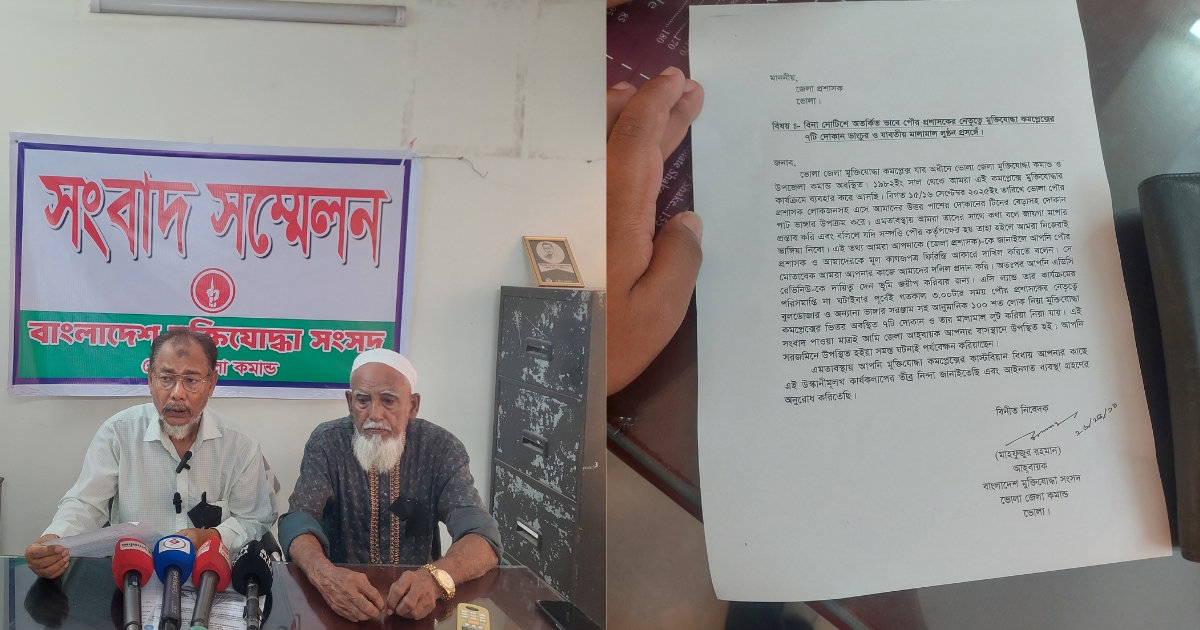 সংবাদ সম্মেলন
বাংলাদেশ মুক্তিযোদ্ধা সংসদ
জেলা কমান্ড
মাননীয়,
জেলা প্রশাসক
ভোলা।
বিষয় ঃ- বিনা নোটিশে অতর্কিত ভাবে পৌর প্রশাসকের নেতৃত্বে মুক্তিযোদ্ধা কমপ্লেক্সের
৭টি দোকান ভাংচুর ও যাবতীয় মালামাল লুন্ঠন প্রসঙ্গে।
জনাব,
ভোলা জেলা মুক্তিযোদ্ধা কমপ্লেক্স যার অধীনে ভোলা জেলা মুক্তিযোদ্ধা কমান্ড ও
উপজেলা কমান্ড অবস্থিত। ১৯৮২ইং সাল থেকে আমরা এই কমপ্লেক্সে মুক্তিযোদ্ধার
কার্যক্রমে ব্যবহার করে আসছি। বিগত ১৫/১৬ সেপ্টেম্বর ২০২৫ইং তারিখে ভোলা পৌর
প্রশাসক লোকজনসহ এসে আমাদের উত্তর পাশের দোকানের টিনের বেড়াসহ দোকান
পাট ভাঙ্গার উপক্রম করে। এমতাবস্থায় আমরা তাদের সাথে কথা বলে জায়গা মাপার
প্রস্তাব করি এবং বলিলে যদি সম্পত্তি পৌর কর্তৃপক্ষের হয় তাহা হইলে আমরা নিজেরাই
ভাঙ্গিয়া নিবো। এই তথ্য আমরা আপনাকে (জেলা প্রশাসক)-কে জানাইলে আপনি পৌর
প্রশাসক ও আমাদেরকে মূল কাগজপত্র ফিরিস্তি আকারে দাখিল করিতে বলেন। সে
মোতাবেক আমরা আপনার কাজে আমাদের দলিল প্রদান করি। অতঃপর আপনি এডিসি
রেভিনিউ-কে দায়িত্ব দেন ভূমি জরীপ করিবার জন্য। এসি ল্যান্ড তার কার্যক্রমের
পরিসমাপ্তি না ঘটাইবার পূর্বেই গতকাল ৩.০০টার সময় পৌর প্রশাসকের নেতৃত্বে
বুলডোজার ও অন্যান্য ভাঙ্গার সরঞ্জাম সহ আনুমানিক ১০০ শত লোক নিয়া মুক্তিযোদ্ধা
কমপ্লেক্সের ভিতর অবস্থিত ৭টি দোকান ও তার মালামাল লুট করিয়া নিয়া যায়। এই
সংবাদ পাওয়া মাত্রই আমি জেলা আহ্বায়ক আপনার বাসস্থানে উপস্থিত হই। আপনি
সরজমিনে উপস্থিত হইয়া সমস্ত ঘটনাই পর্যবেক্ষন করিয়াছেন।
এমতাবস্থায় আপনি মুক্তিযোদ্ধা কমপ্লেক্সের কাস্টবিয়ান বিধায় আপনার কাছে
এই উস্কানীমূলখ কার্যকলাপের তীব্র নিন্দা জানাইতেছি এবং আইনগত ব্যবস্থা গ্রহণের
অনুরোধ করিতেছি।
বিনীত নিবেদক
(মাহফুজুর রহমান)
আহ্বায়ক
বাংলাদেশ মুক্তিযোদ্ধা সংসদ
ভোলা জেলা কমান্ড
ভোলা।